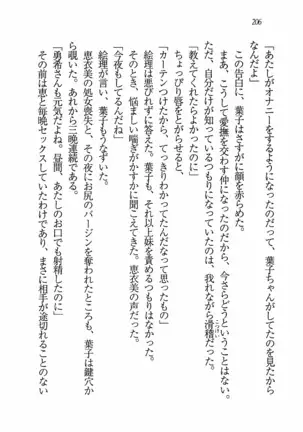 206
「あたしがオナニーをするようになったのだって、葉子ちゃんがしてたのを見たから
なんだよ」
この告白に、葉子はさすがに顔を赤らめた。
まあ、こうして愛撫を交わす仲になったのだから、今さらどうということはない。
ただ、自分だけが知っているつもりになっていたのは、我れながら滑稽だった。
こっけい
「教えてくれたらよかったのに」
ちょっぴり唇をとがらせると、
「カーテンつけたから、てっきりわかってたんだなって思ったもの」
絵理は悪びれずに答えた。葉子も、それ以上妹を責めるつもりはなかった。
そのとき、悩ましい喘ぎがかすかに聞こえてきた。恵衣美だ。
「今夜もしてるんだね」
絵理が言い、葉子もうなずいた。
恵衣美の処女喪失と、その夜にお尻のバージンを奪われたところも、葉子は鍵穴か
ら覗いた。あれから三晩連続である。
「勇希さんも元気だよね。昼間、あたしのお口でも射精したのに」
その前は恵と毎晩セックスしていたわけであり、まさに相手が途切れることのない